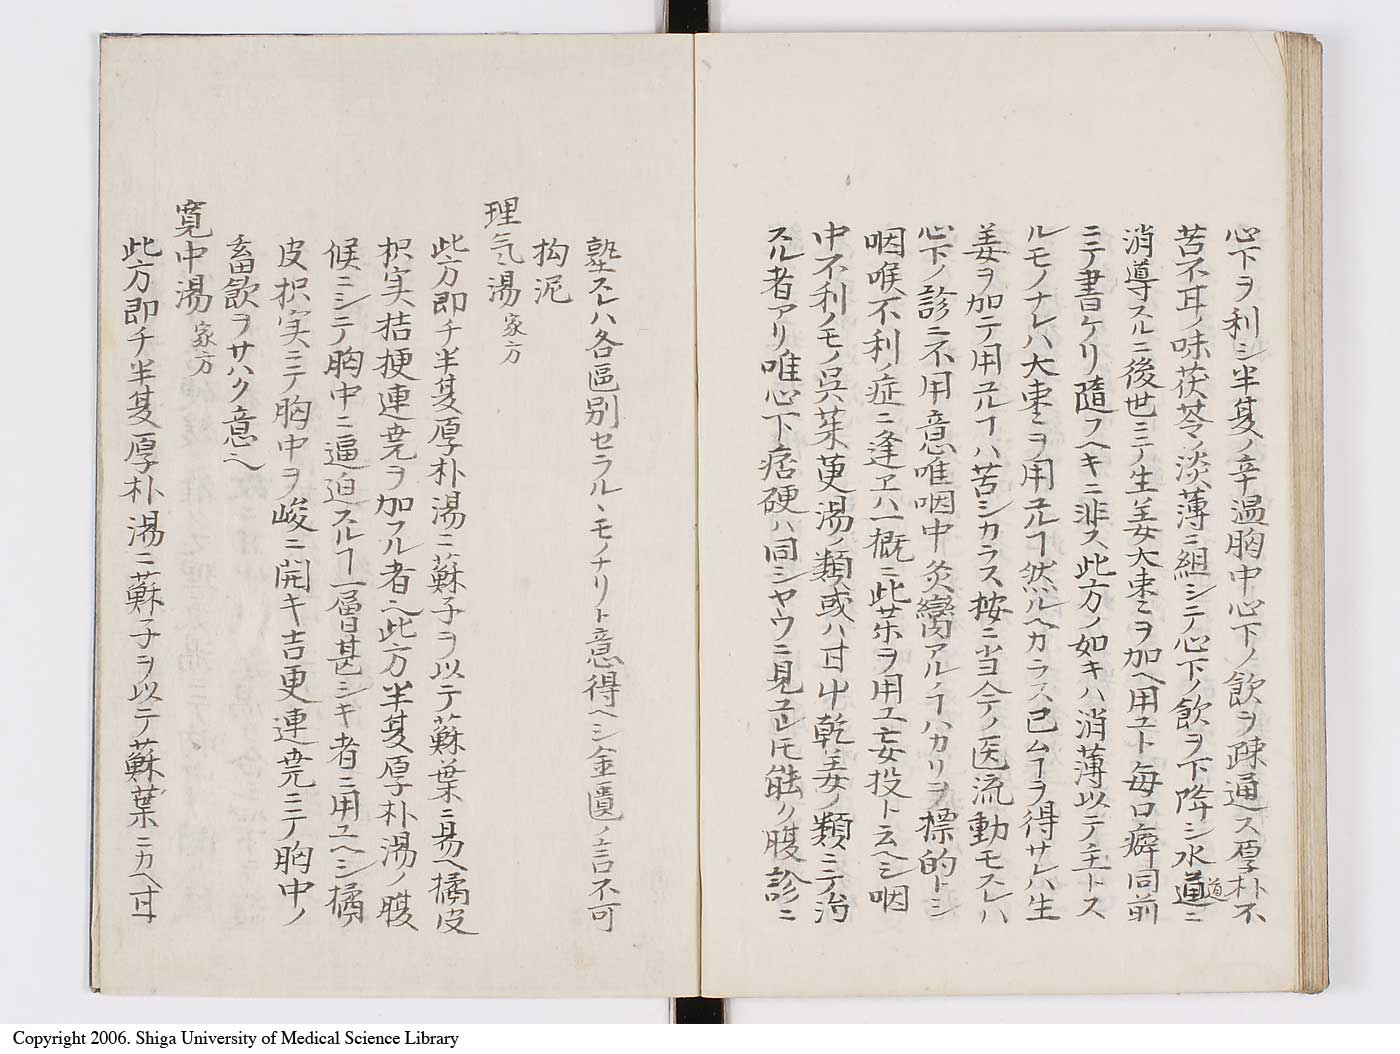 心下ヲ利シ半夏ノ辛温胸中心下ノ飲ヲ疎通ス厚朴不
苦不耳ノ味茯苓ノ淡薄ニ組シテ心下ノ飲ヲ下降シ水道ニ
道
消導スルニ後世ミテ生姜大枣ミヲ加ヘ用ユト毎口癖同前
ニテ書ケリ隨フヘキニ非ス此方ノ如キハ消薄以テ主トス
ルモノナレハ大枣ミヲ用ユルヿ然ルヘカラス已ムヿヲ得サレハ生
姜ヲ加テ用ユルヿハ苦シカラス按ニ当今ノ医流動モスレハ
心下ノ診ニ不用意唯咽中炙臠アルヿハカリヲ標的トシ
咽喉不利ノ症ニ逢ヱハ一概ニ此茱ヲ用ユ妄投ト云ヘシ咽
中不利ノモノ呉茱萸湯ノ類或ハ甘屮乾姜ノ類ミテ治
スル者アリ唯心下痞硬ハ同シヤウニ見ユレ𪜈能ク腹診ニ
塾スレハ各區別セラルヽモノナリト意得ヘシ金匱ノ言不可
拘泥
理気湯家方
此方即チ半夏厚朴湯ニ蘇子ヲ以テ蘇葉ニ易ヘ橘皮
枳実桔梗連売ヲ加フル者ヘ此方半夏厚朴湯ノ腹
候ニシテ胸中ニ逼迫スルヿ一層甚シキ者ニ用ユヘシ橘
皮枳実ミテ胸中ヲ峻ニ開キ吉更連売ミテ胸中ノ
畜飲ヲサハク意ヘ
寛中湯家方
此方即チ半夏厚朴湯ニ蘇子ヲ以テ蘇葉ニカヘ甘